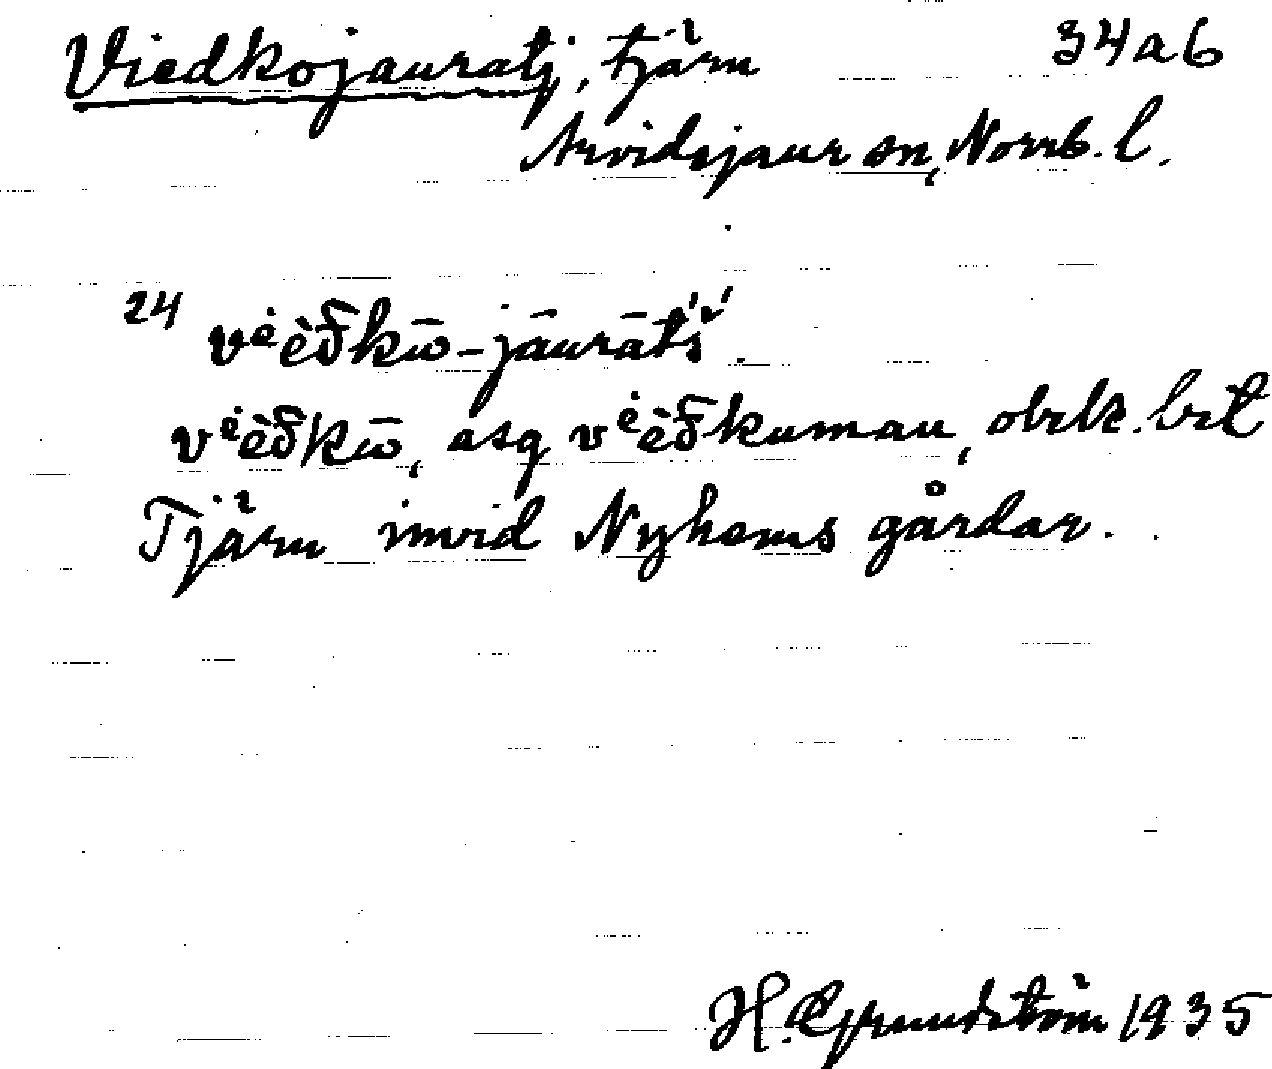 Viedkojauratj, tjärn 34a6
Arvidsjaur sn, Norrb. l.
24 vėèδkō-jāurāt́š́.
vėèδkō, asg vėèδkumau,
Tjärn invid Nyhems gårdar.
H. Grundström 1935